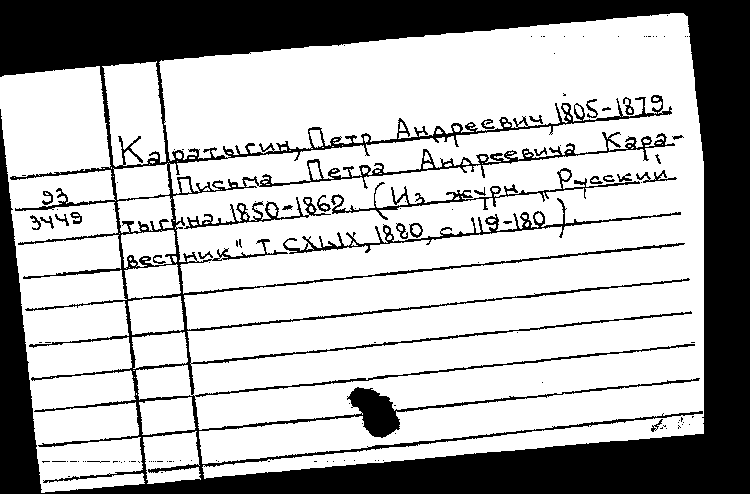 Каратыгин, Петр Андреевич, 1805-1879.
Письма Петра Андреевича Кара-
93
3449
тыгина. 1850-1862. (Из журн. „Русский
вестник". Т. CXLIX, 1880, с. 119-180).